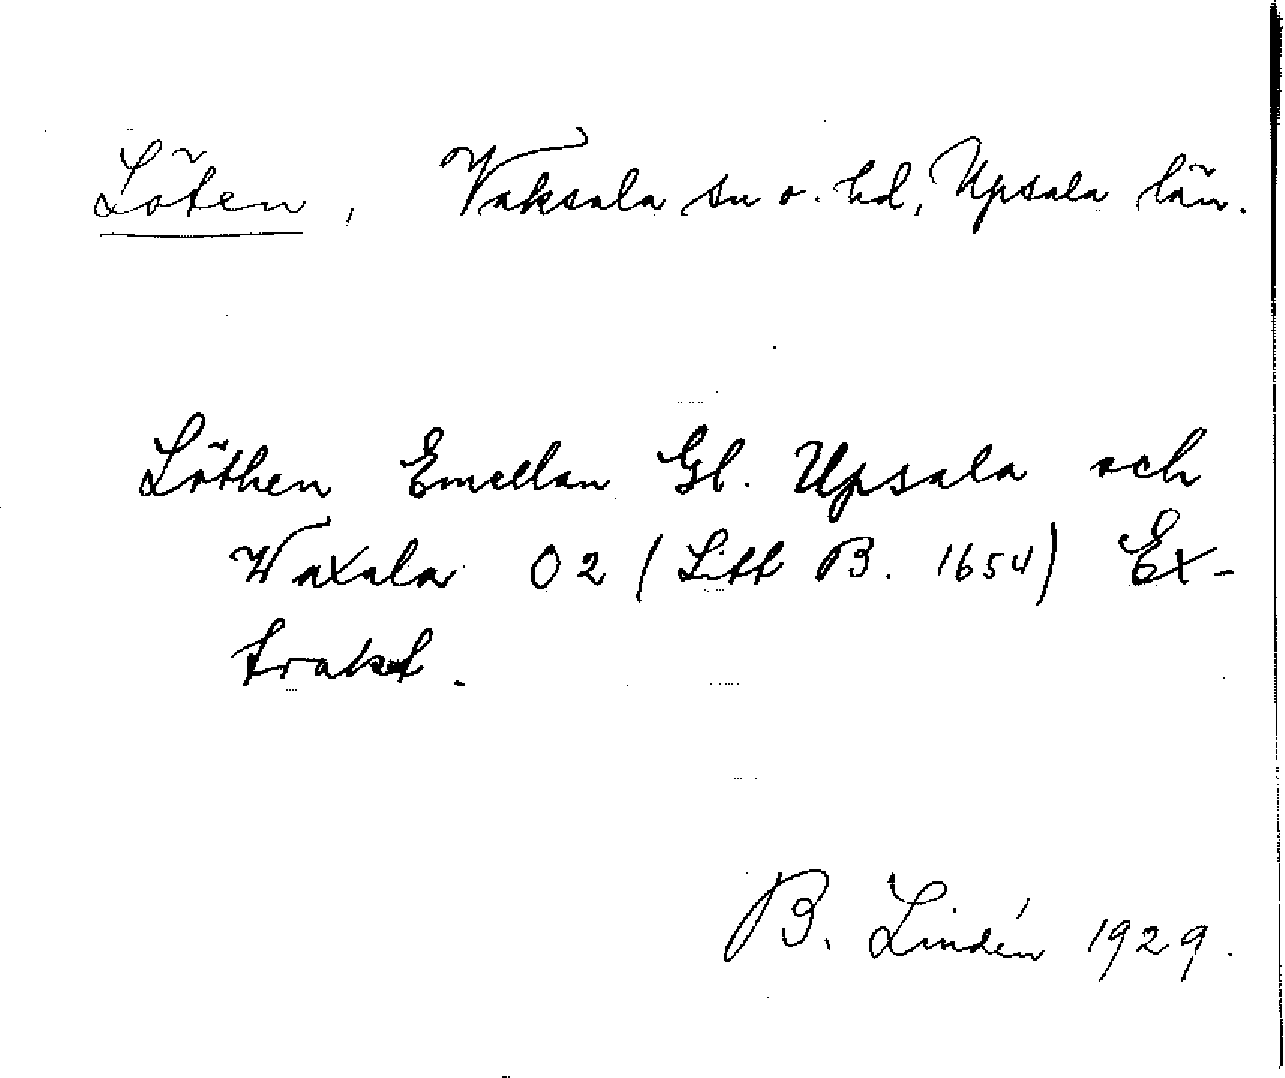 Löten, Vaksala sn o. hd, Upsala län.
Löthen Emellan Gl. Upsala och
Waxala O 2 (Litt B. 1654) Ex-
trakt.
B. Lindén 1929.